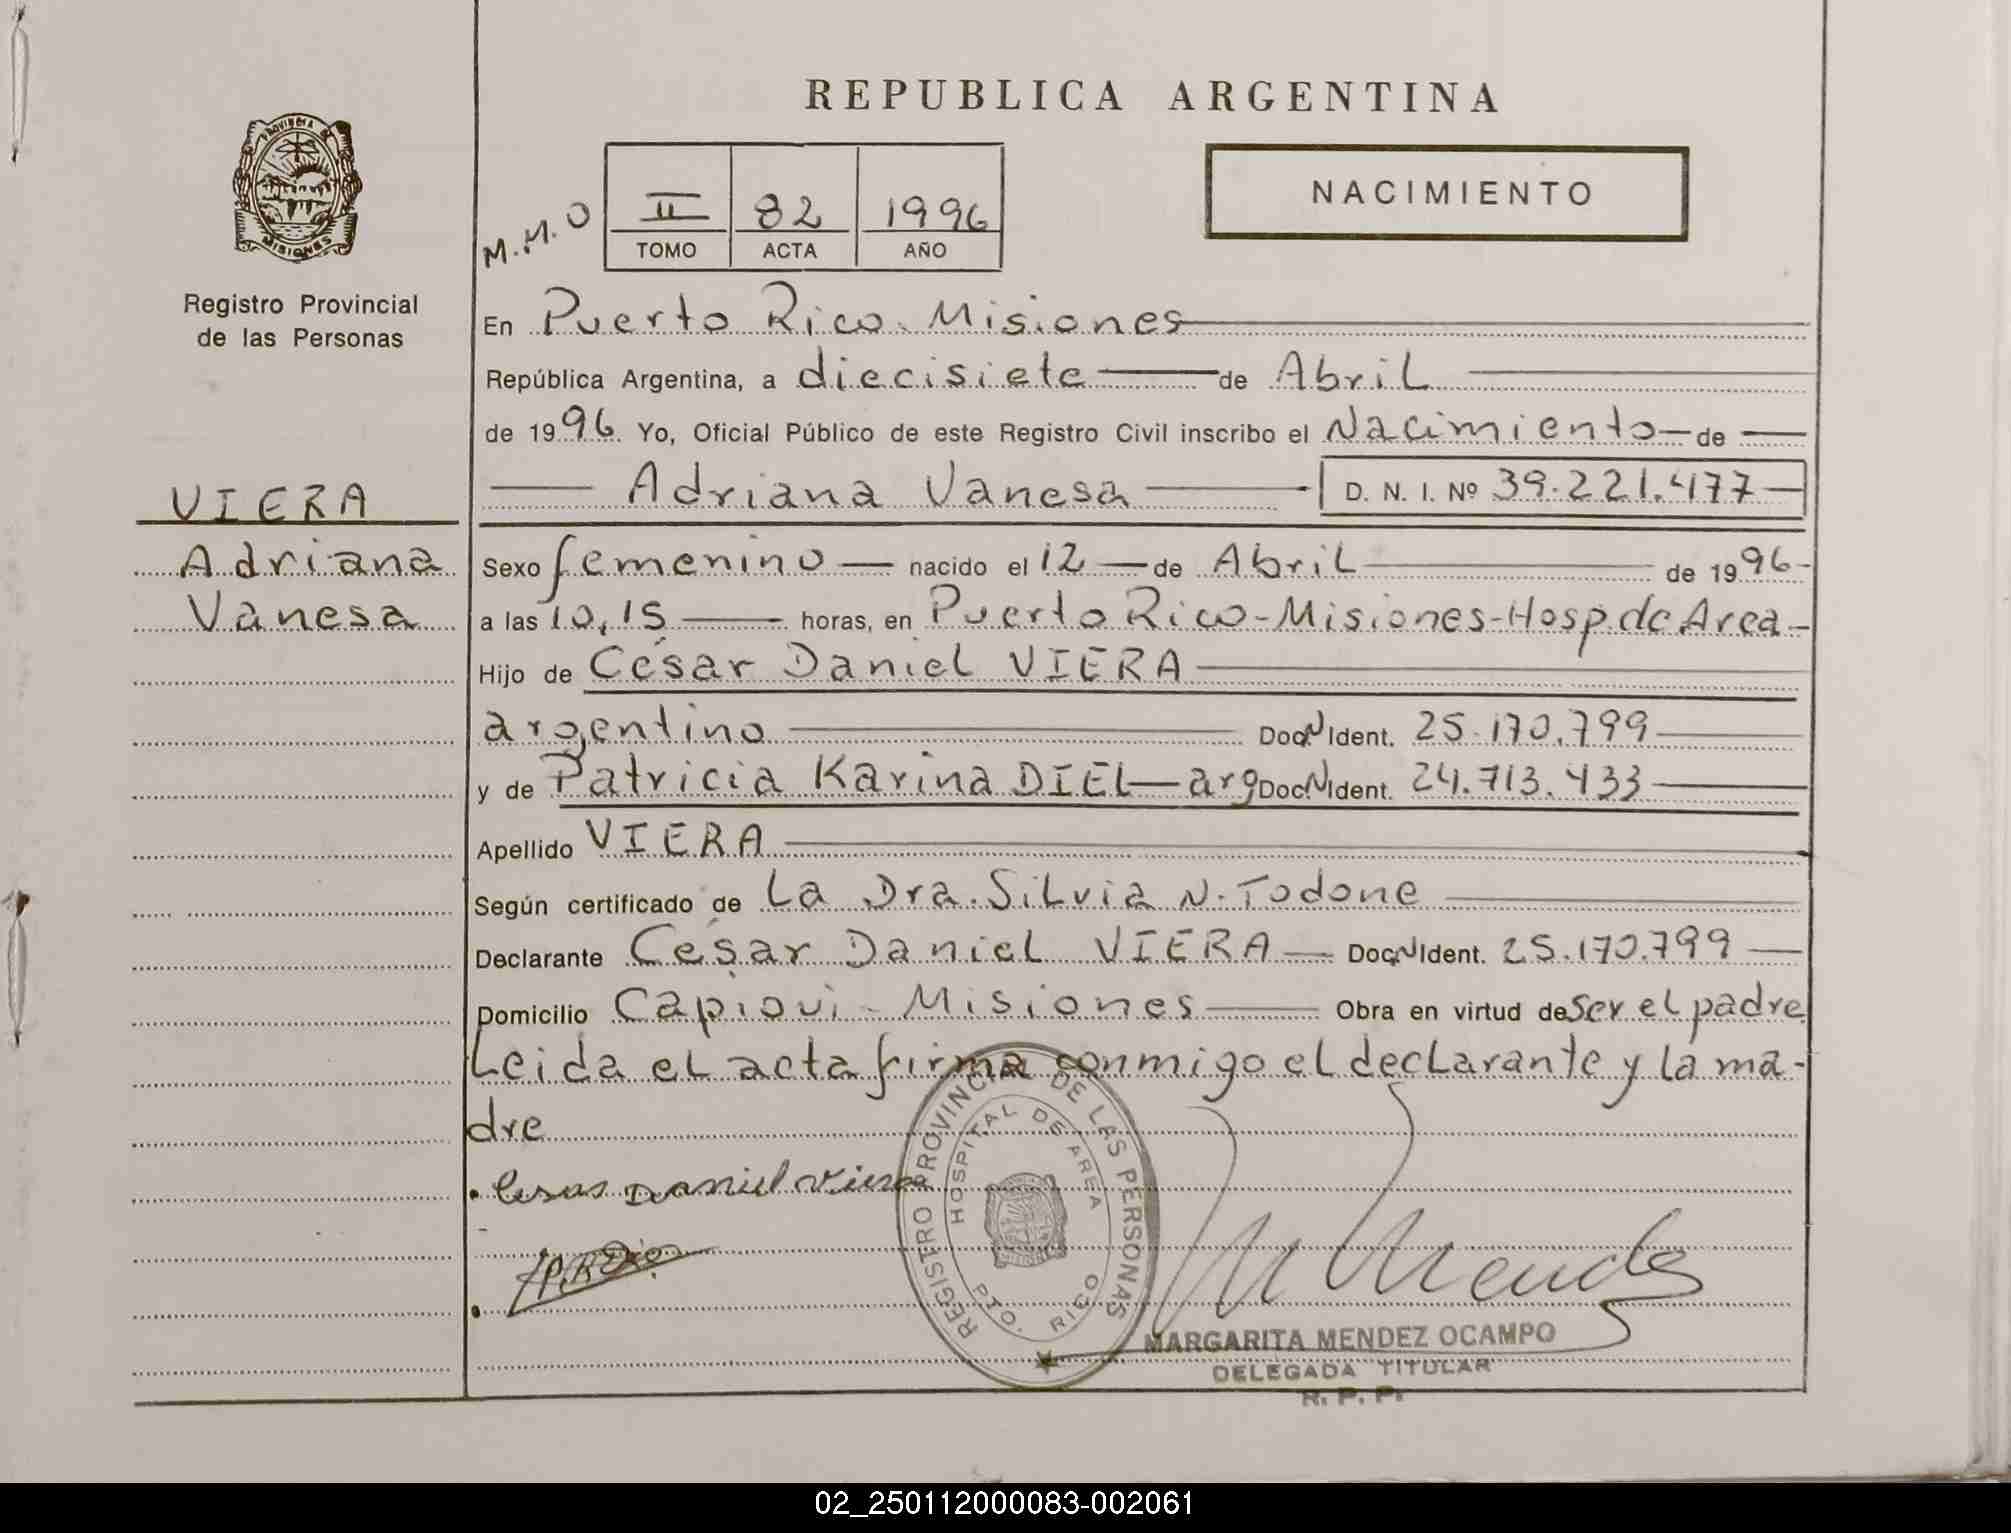 REPUBLICA ARGENTINA
PROVINCIA DE
MISIONES
Registro Provincial
de las Personas
M.M.O
II 82 1996
TOMO ACTA AÑO
NACIMIENTO
En Puerto Rico. Misiones
República Argentina, a diecisiete de Abril
de 1996. Yo, Oficial Público de este Registro Civil inscribo el Nacimiento de
Adriana Vanesa D. N. I. Nº 39.221.477
VIERA
Adriana
Vanesa
Sexo femenino nacido el 12 de Abril de 1996
a las 10,15 horas, en Puerto Rico-Misiones-Hosp.de Area-
Hijo de César Daniel VIERA
argentino Doc.N Ident. 25.170.799
y de Patricia Karina DIEL-arg Doc.N Ident. 24.713.433
Apellido VIERA
Según certificado de La Dra. Silvia N. Todone
Declarante César Daniel VIERA Doc.N Ident. 25.170.799
Domicilio Capiovi - Misiones Obra en virtud de ser el padre
Leida el acta firma conmigo el declarante y la ma-
dre
Cesar Daniel Viera
REGISTRO PROVINCIAL DE LAS PERSONAS
HOSPITAL DE AREA
PTO. RICO
M Mendez
MARGARITA MENDEZ OCAMPO
DELEGADA TITULAR
R. P. P.
02_250112000083-002061